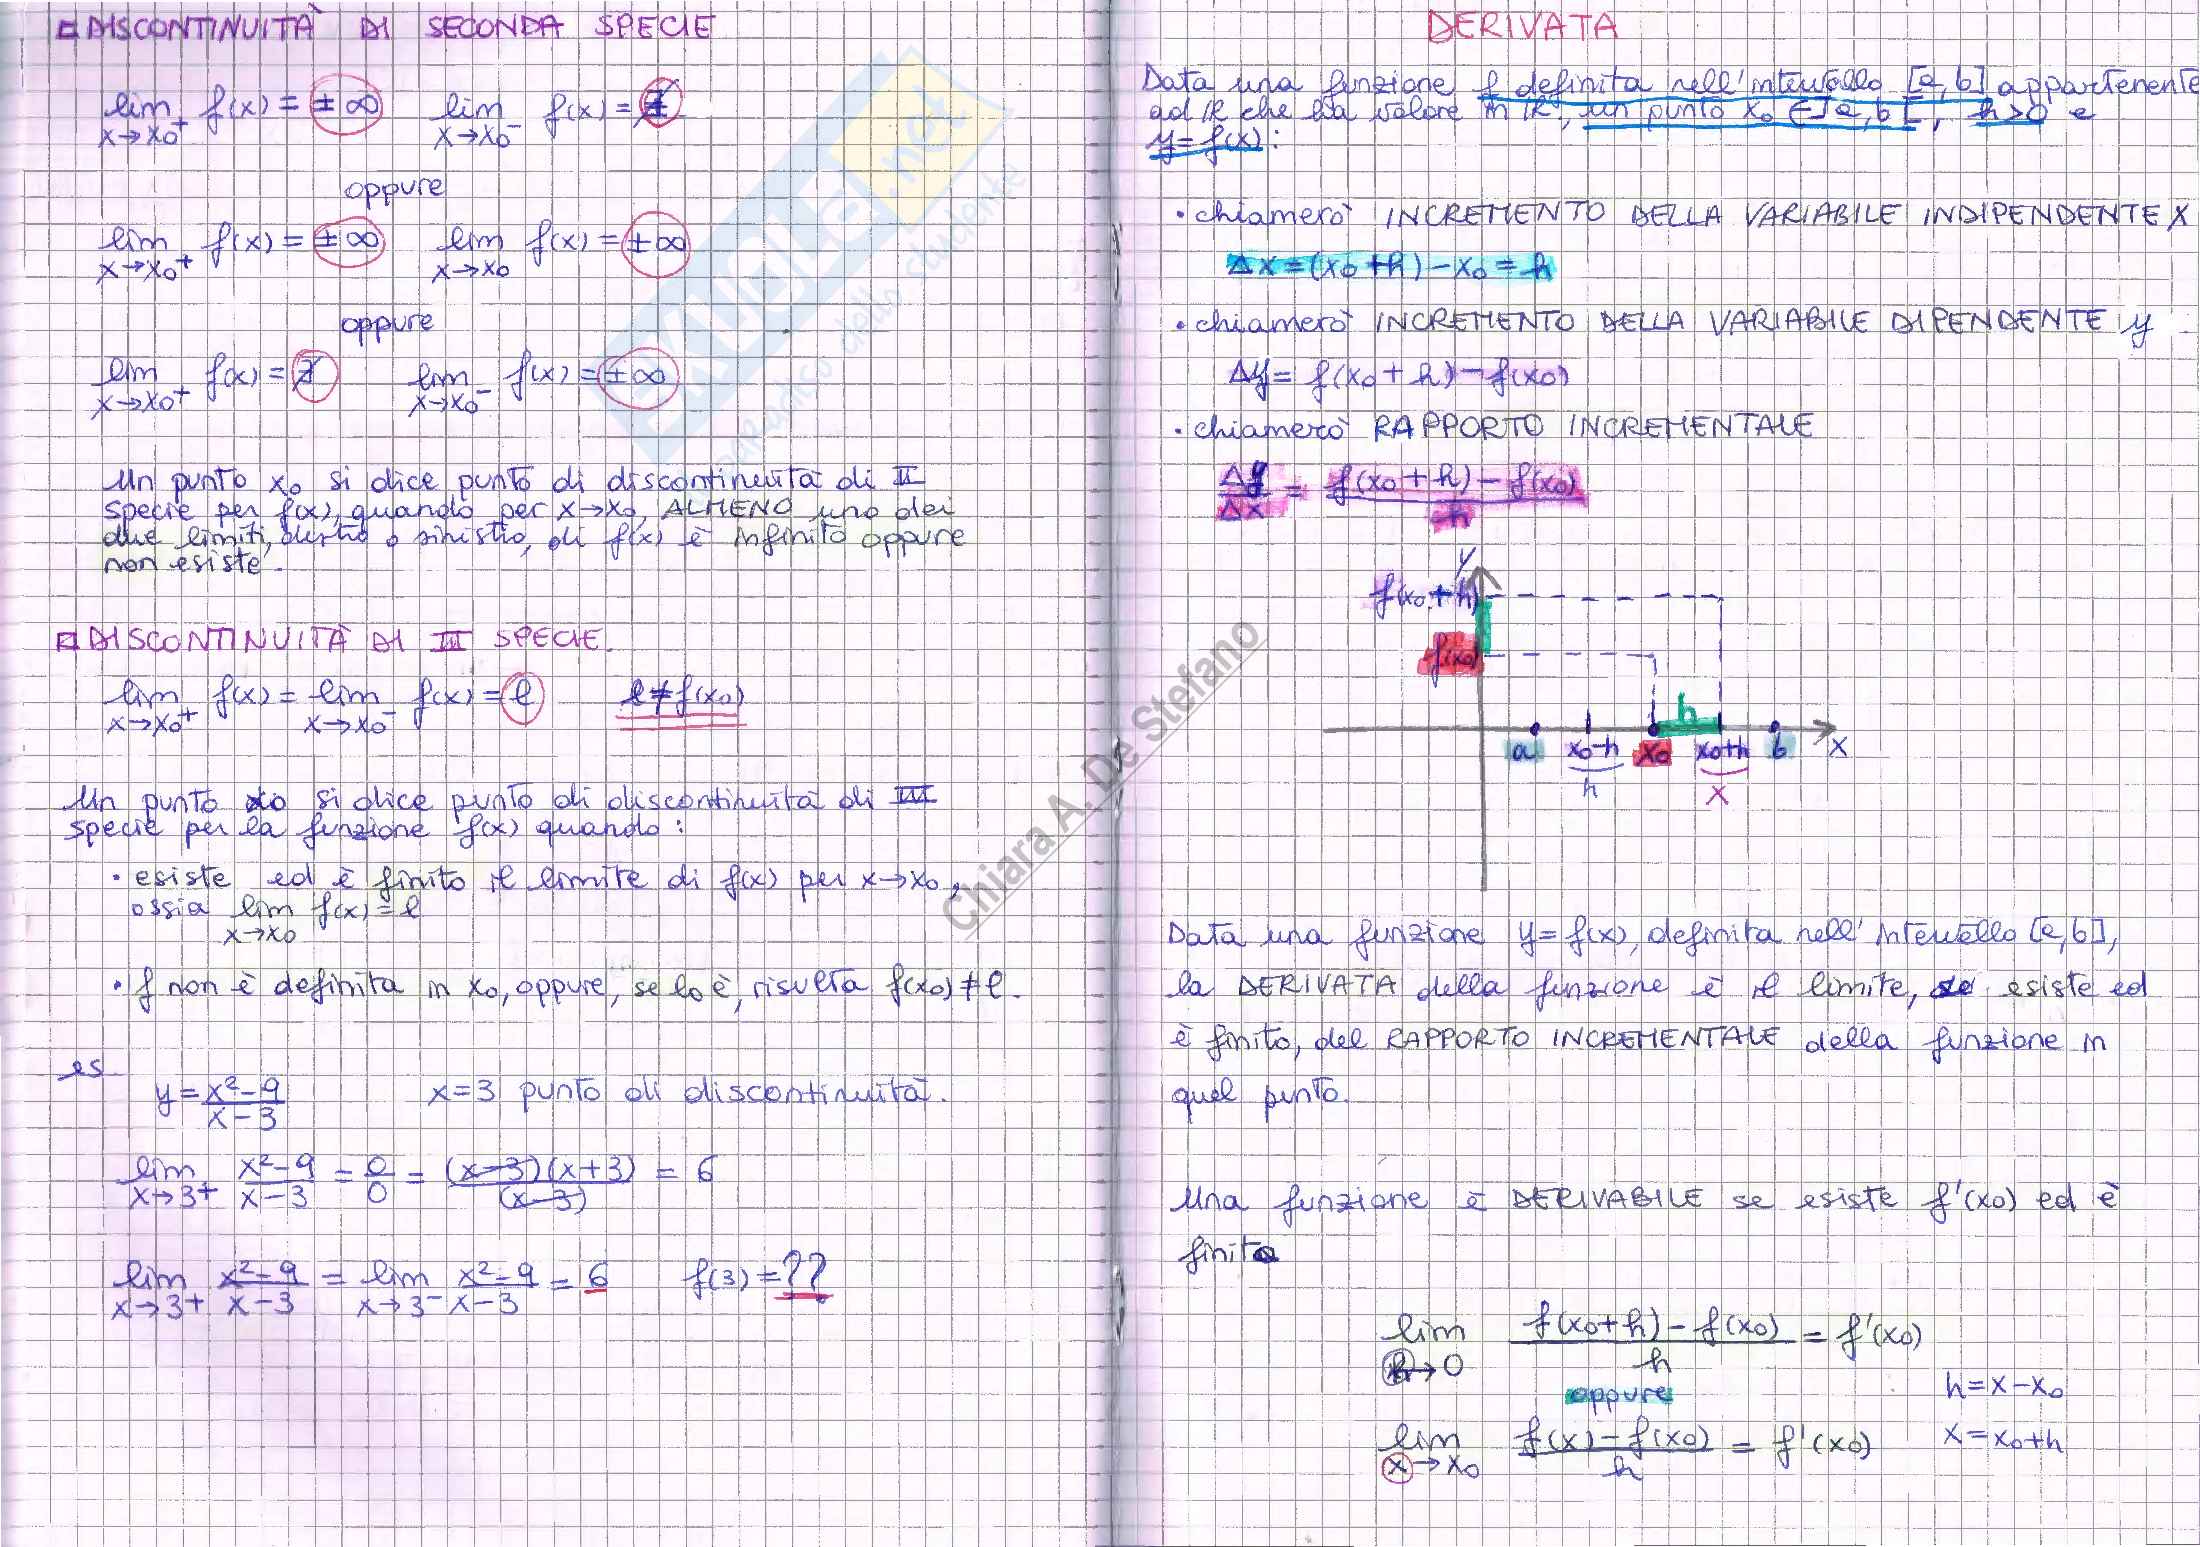 DISCONTINUITÀ DI SECONDA SPECIE
lim x→x₀⁺ f(x) = ±∞   lim x→x₀⁻ f(x) = ∄
oppure
lim x→x₀⁺ f(x) = ±∞   lim x→x₀ f(x) = ±∞
oppure
lim x→x₀⁺ f(x) = ∄   lim x→x₀⁻ f(x) = ±∞
Un punto x₀ si dice punto di discontinuità di II
specie per f(x), quando per x→x₀, ALMENO uno dei
due limiti, destro o sinistro, di f(x) è infinito oppure
non esiste.
DISCONTINUITÀ DI III SPECIE.
lim x→x₀⁺ f(x) = lim x→x₀⁻ f(x) = l   l ≠ f(x₀)
Un punto x₀ si dice punto di discontinuità di III
specie per la funzione f(x) quando:
• esiste ed è finito il limite di f(x) per x→x₀,
ossia lim x→x₀ f(x) = l
• f non è definita in x₀, oppure, se lo è, risulta f(x₀) ≠ l.
es
y = (x²-9)/(x-3)   x=3 punto di discontinuità.
lim x→3⁺ (x²-9)/(x-3) = 0/0 = (x-3)(x+3)/(x-3) = 6
lim x→3⁺ (x²-9)/(x-3) = lim x→3⁻ (x²-9)/(x-3) = 6   f(3) = ??
DERIVATA
Data una funzione f definita nell'intervallo [a,b] appartenente
ad ℝ che ha valore in ℝ, un punto x₀ ∈ ]a,b[, h>0 e
y = f(x):
• chiamerò INCREMENTO DELLA VARIABILE INDIPENDENTE X
Δx = (x₀+h) - x₀ = h
• chiamerò INCREMENTO DELLA VARIABILE DIPENDENTE y
Δy = f(x₀+h) - f(x₀)
• chiamerò RAPPORTO INCREMENTALE
Δy/Δx = (f(x₀+h) - f(x₀))/h
y
f(x₀+h)
f(x₀)
h
a x₀-h x₀ x₀+h b x
h x
Data una funzione y = f(x), definita nell'intervallo [a,b],
la DERIVATA della funzione è il limite, se esiste ed
è finito, del RAPPORTO INCREMENTALE della funzione in
quel punto.
Una funzione è DERIVABILE se esiste f'(x₀) ed è
finita
lim h→0 (f(x₀+h) - f(x₀))/h = f'(x₀)
oppure   h = x-x₀
lim x→x₀ (f(x) - f(x₀))/h = f'(x₀)   x = x₀+h
Chiara A. De Stefano
.net
dello studente